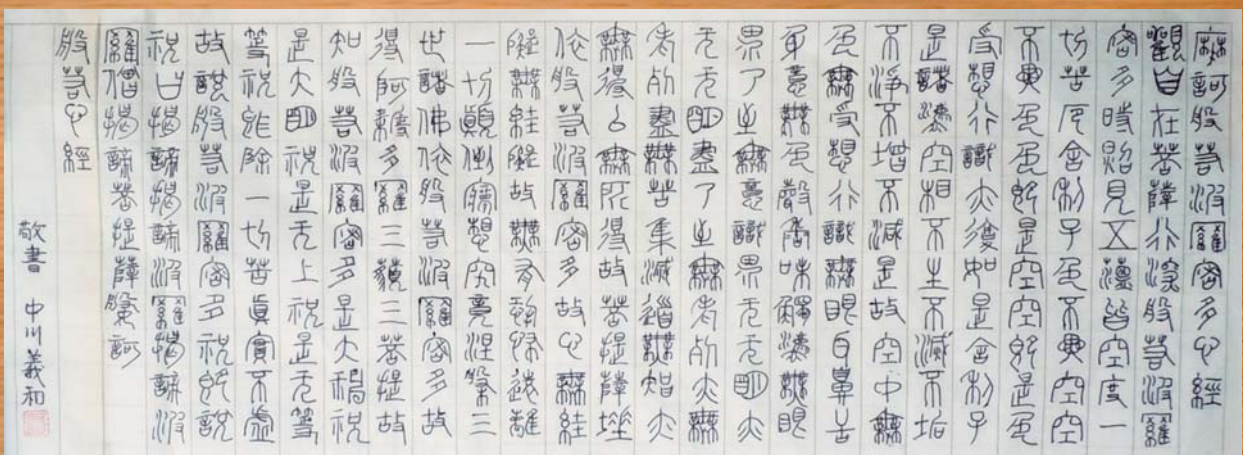 摩訶般若波羅蜜多心經
觀自在菩薩行深般若波羅
蜜多時照見五蘊皆空度一
切苦厄舍利子色不異空空
不異色色即是空空即是色
受想行識亦復如是舍利子
是諸法空相不生不滅不垢
不淨不增不減是故空中無
色無受想行識無眼自鼻舌
身意無色聲香味觸法無眼
界乃至無意識界无无明亦
无无明盡乃至無老死亦無
老死盡無苦集滅道無智亦
無得以無所得故菩提薩埵
依般若波羅蜜多故心無罣
礙無罣礙故無有恐怖遠離
一切顛倒夢想究竟涅槃三
世諸佛依般若波羅蜜多故
得阿耨多羅三藐三菩提故
知般若波羅蜜多是大神祝
是大明祝是无上祝是无等
等祝能除一切苦真實不虛
故說般若波羅蜜多祝即說
祝曰揭諦揭諦波羅揭諦波
羅僧揭諦菩提薩婆訶
般若心經
敬書 中川義和